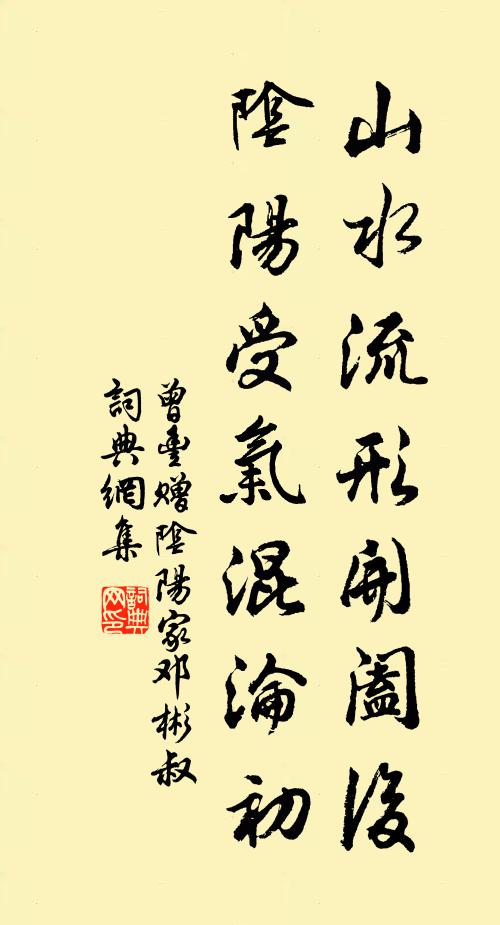 山水流形開闔後
陰陽受氣混淪初
曾豊赠陰陽家邓彬叔
詞典網集
詞典网印